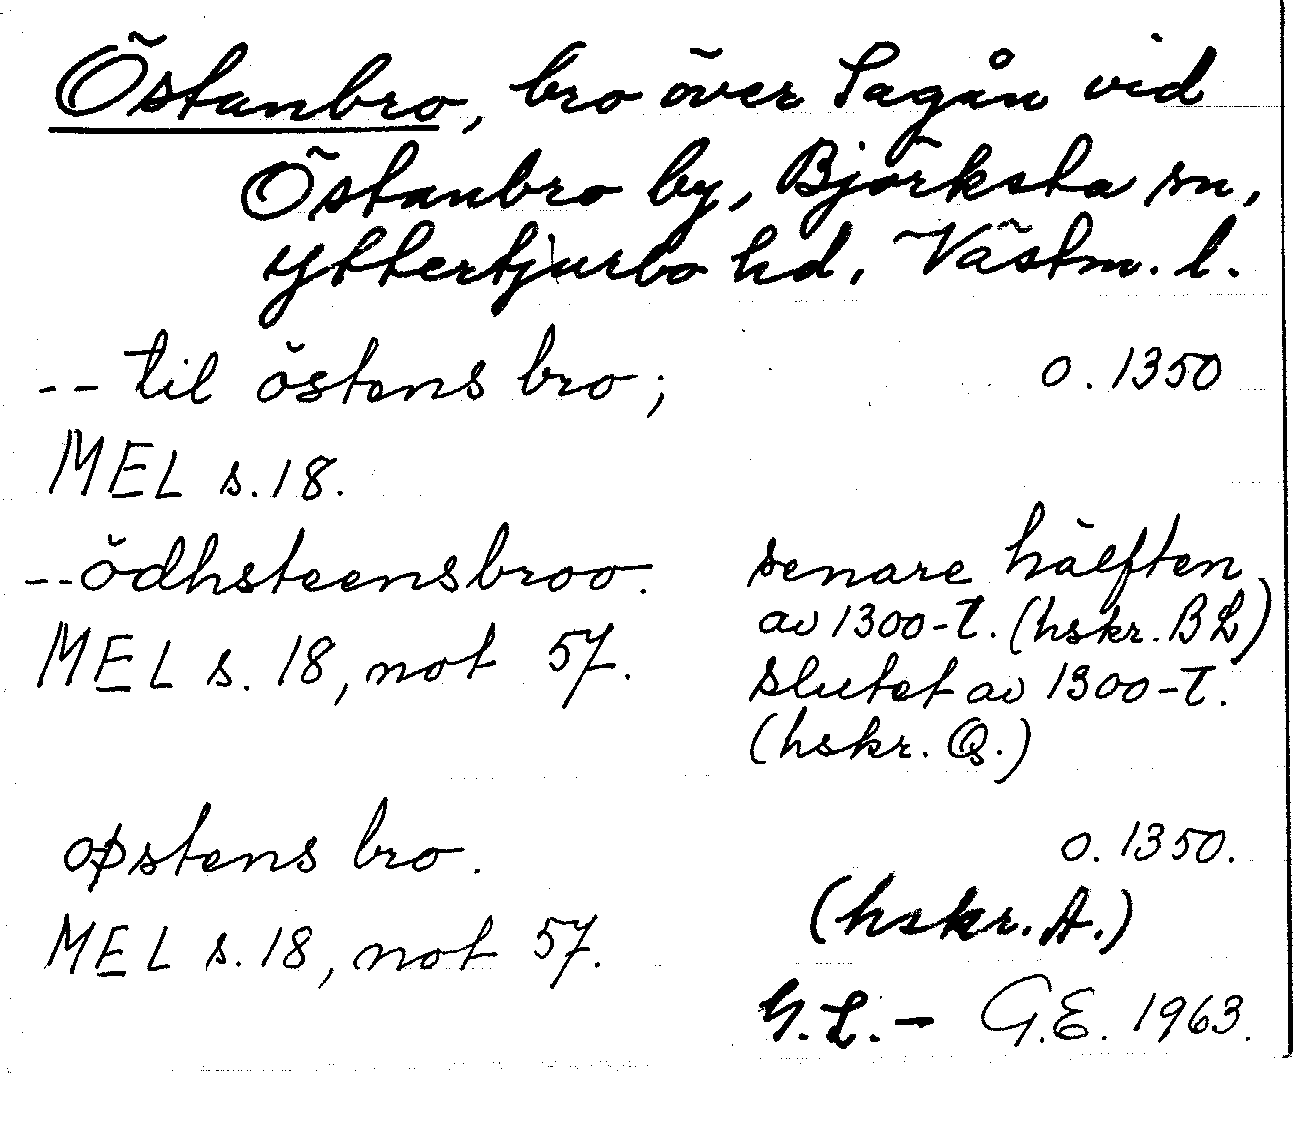 Östanbro, bro över Sagån vid
Östanbro by, Björksta sn,
Yttertjurbo hd, Västm. l.
-- til östens bro; o. 1350
MEL s. 18.
-- ödhsteensbroo. senare hälften
av 1300-t. (hskr. BL)
MEL s. 18, not 57. slutet av 1300-t.
(hskr. Q.)
oþstens bro. o. 1350.
(hskr. A.)
MEL s. 18, not 57.
G.L. - G.E. 1963.